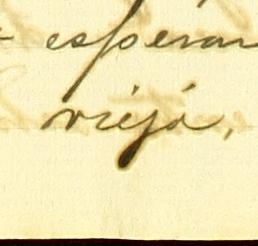 esperar
vieja,